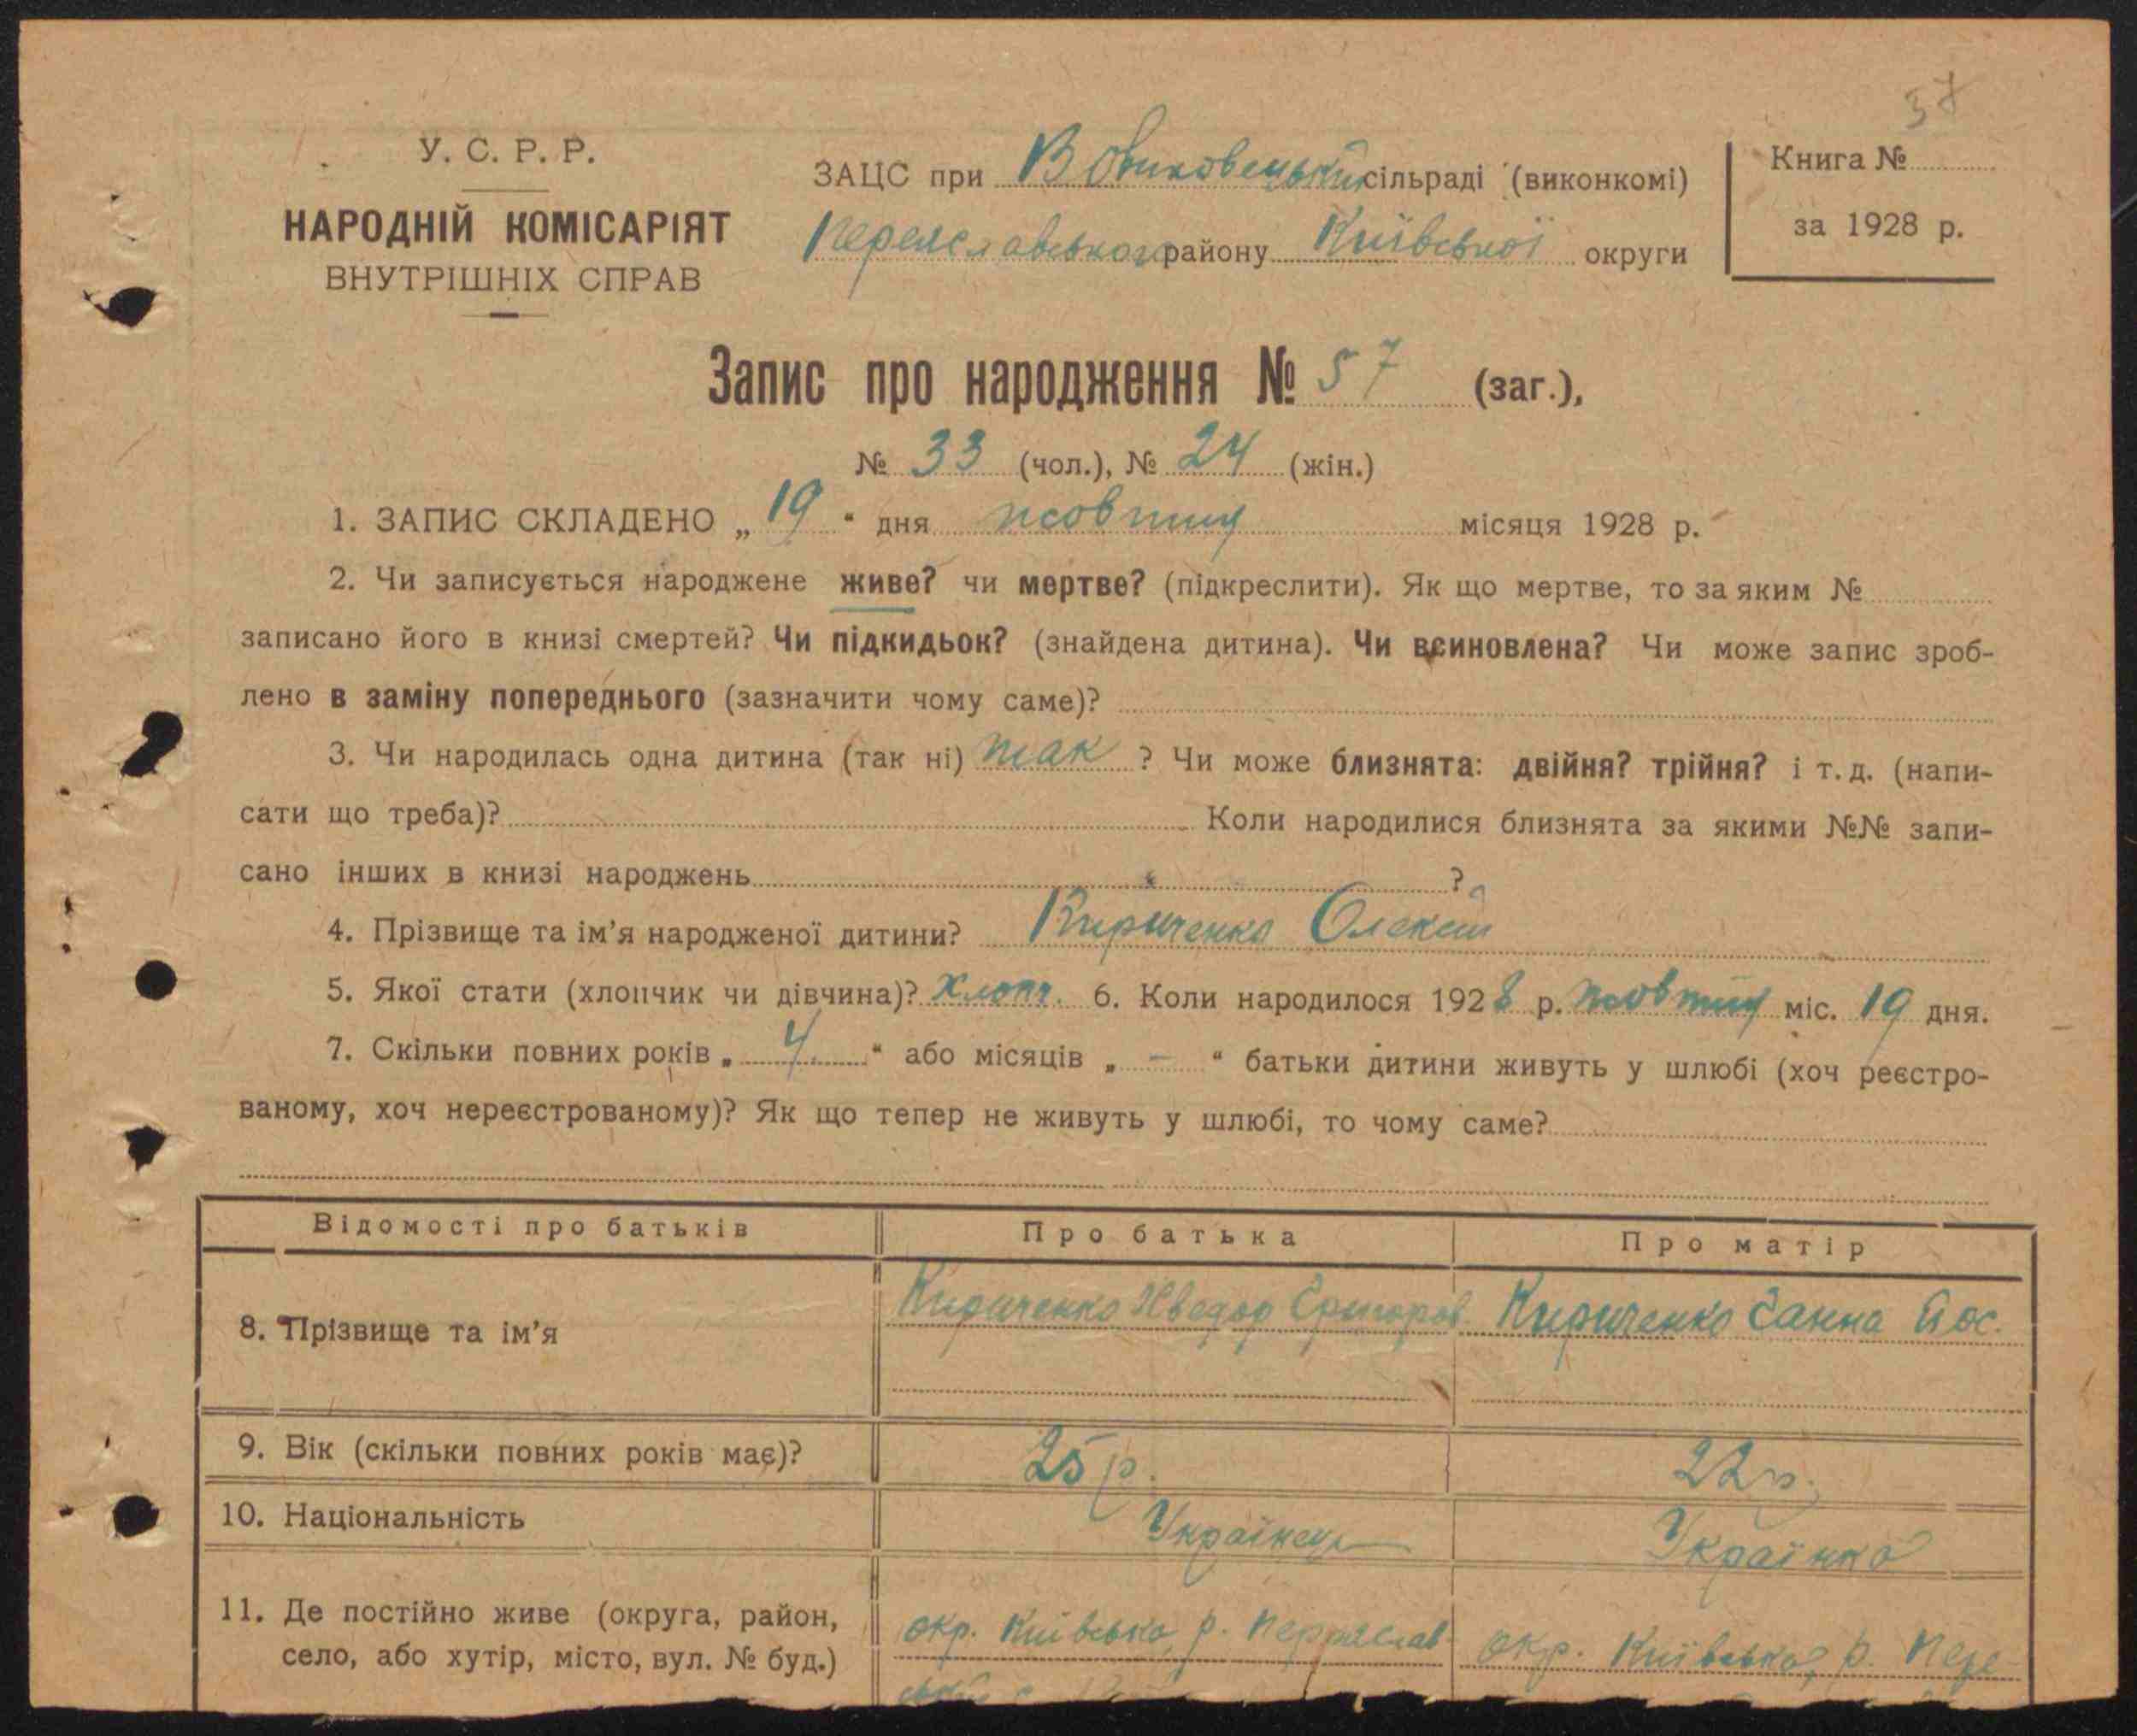 37
У. С. Р. Р.
НАРОДНІЙ КОМІСАРІЯТ
ВНУТРІШНІХ СПРАВ
ЗАЦС при Вовчковецькій сільраді (виконкомі)
Переяславського району Київської округи
Книга №
за 1928 р.
Запис про народження № 57 (заг.),
№ 33 (чол.), № 24 (жін.)
1. ЗАПИС СКЛАДЕНО „19“ дня жовтня місяця 1928 р.
2. Чи записується народжене живе? чи мертве? (підкреслити). Як що мертве, то за яким №
записано його в книзі смертей? Чи підкидьок? (знайдена дитина). Чи всиновлена? Чи може запис зроб-
лено в заміну попереднього (зазначити чому саме)?
3. Чи народилась одна дитина (так ні) так ? Чи може близнята: двійня? трійня? і т. д. (напи-
сати що треба)? Коли народилися близнята за якими №№ запи-
сано інших в книзі народжень ?
4. Прізвище та ім’я народженої дитини? Кириченко Олексій
5. Якої стати (хлопчик чи дівчина)? хлопч. 6. Коли народилося 1928 р. жовтня міс. 19 дня.
7. Скільки повних років „ 4. “ або місяців „ — “ батьки дитини живуть у шлюбі (хоч реєстро-
ваному, хоч нереєстрованому)? Як що тепер не живуть у шлюбі, то чому саме?
Відомості про батьків Про батька Про матір
8. Прізвище та ім’я Кириченко Хведор Григоров. Кириченко Ганна
9. Вік (скільки повних років має)? 25 р. 22 р.
10. Національність Українець Українка
11. Де постійно живе (округа, район,
село, або хутір, місто, вул. № буд.)
окр. Київська, р. Переяслав-
окр. Київська, р. Пере-